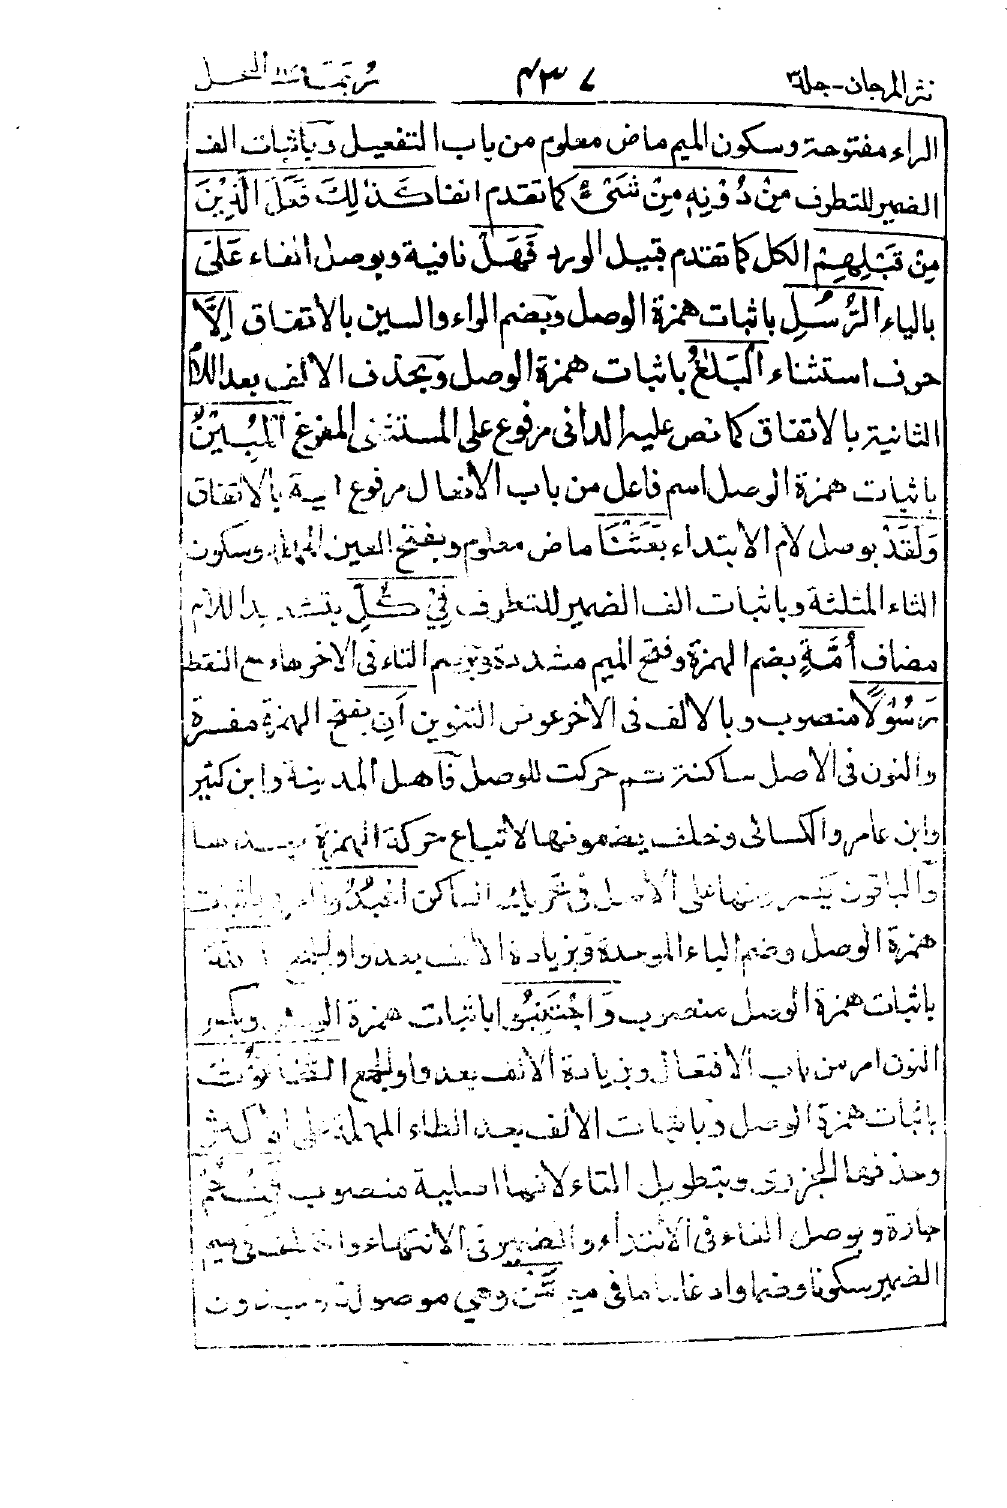 نثر المرجان - جلد ٣
٤٣٧
ربما ١٤ النحل
الراء مفتوحة وسكون الميم ماض معلوم من باب التفعيل وباثبات الف
الضمير للتطرف مِنْ دُوْنِهٖ مِنْ شَىْءٍ كما تقدم انفا كَذٰلِكَ فَعَلَ الَّذِيْنَ
مِنْ قَبْلِهِمْ الكل كما تقدم قبيل الورد فَهَلْ نافية وبوصل الفاء عَلَى
بالياء الرُّسُلِ باثبات همزة الوصل وبضم الراء والسين بالاتفاق اِلَّا
حرف استثناء الْبَلٰغُ باثبات همزة الوصل وبحذف الالف بعد اللام
الثانية بالاتفاق كما نص عليه الدانى مرفوع على المستثنى المفرغ الْمُبِيْنُ
باثبات همزة الوصل اسم فاعل من باب الافعال مرفوع اية بالاتفاق
وَلَقَدْ بوصل لام الابتداء بَعَثْنَا ماض معلوم وبفتح العين المهملة وسكون
الثاء المثلثة وباثبات الف الضمير للتطرف فِيْ كُلِّ بتشديد اللام
مضاف اُمَّةٍ بضم الهمزة وفتح الميم مشددة وبرسم التاء فى الاخر هاء مع النقط
رَسُوْلًا منصوب وبالالف فى الاخر عوض التنوين اَنِ بفتح الهمزة مفسرة
والنون فى الاصل ساكنة ثم حركت للوصل فاهل المدينة وابن كثير
وابن عامر والكسائى وخلف يضمونها لاتباع حركة الهمزة
والباقون يكسرونها على الاصل فى تحريك الساكن اعْبُدُوا امر وباثبات
همزة الوصل وضم الباء الموحدة وبزيادة الالف بعد واو الجمع اللّٰهَ
باثبات همزة الوصل منصوب وَاجْتَنِبُوا باثبات همزة الوصل وبكسر
النون امر من باب الافتعال وبزيادة الالف بعد واو الجمع الطَّاغُوْتَ
باثبات همزة الوصل وباثبات الالف بعد الطاء المهملة على الاكثر
وحذفها الجزرى وبتطويل التاء لانها اصلية منصوب فَمِنْهُمْ
جارة وبوصل الفاء فى الابتداء والضمير فى الانتهاء واختلف فى ميم
الضمير سكونا وضما وادغاما فى ميم مَّنْ وهي موصولة بدون